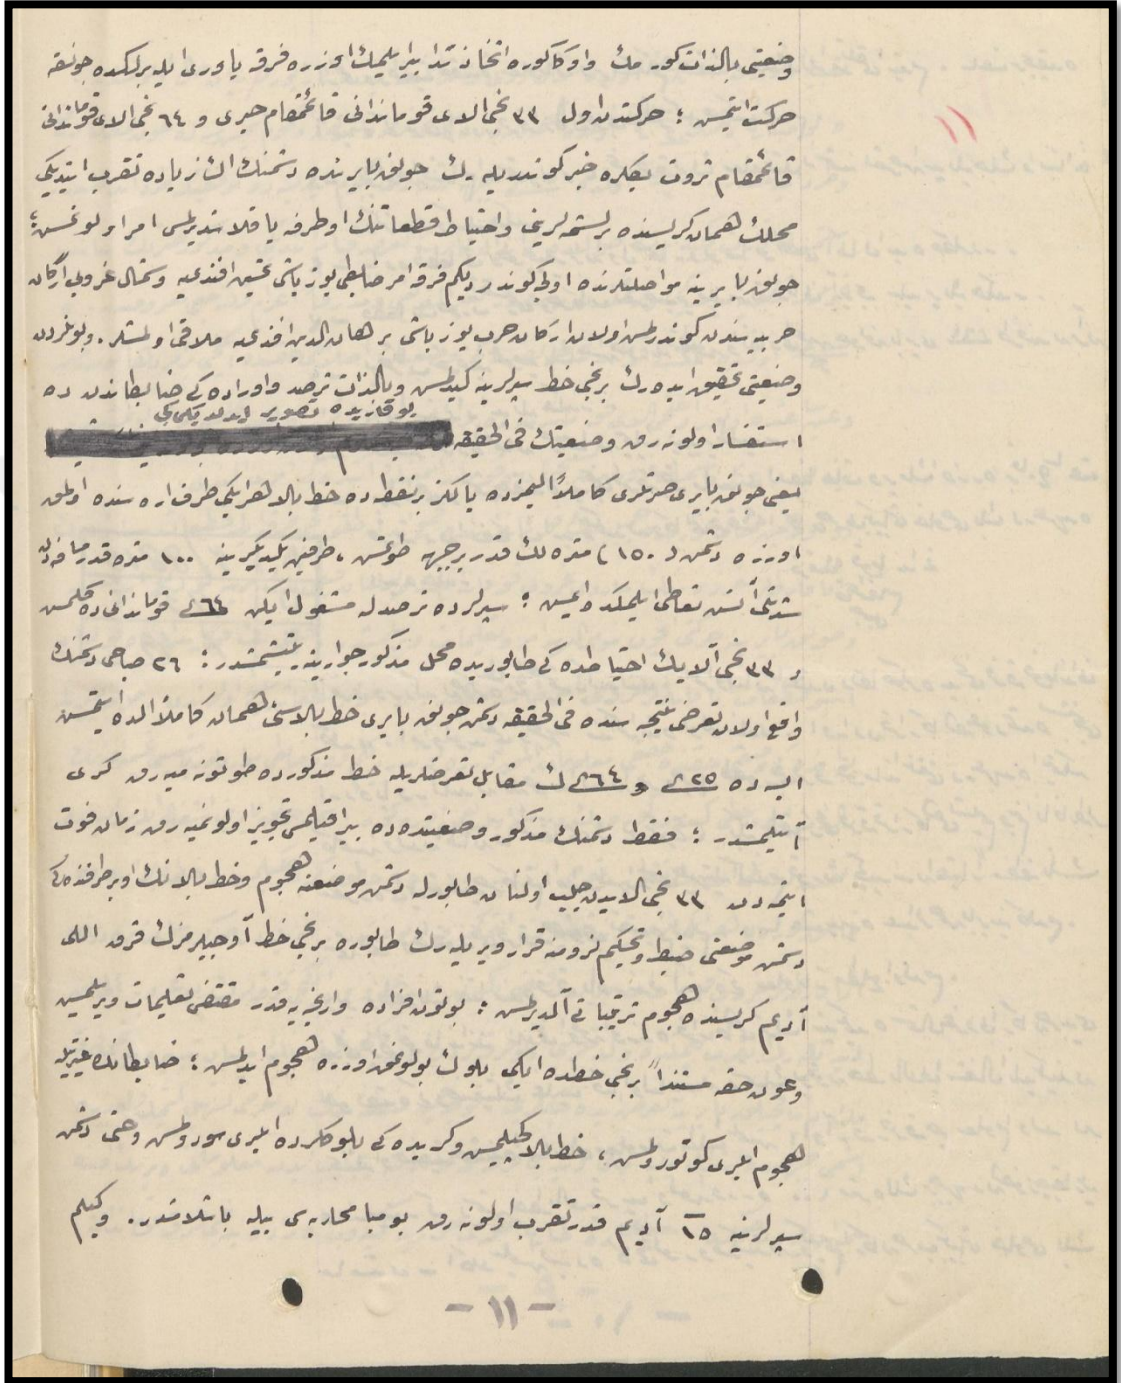 ١١
وضعیتی بالذات كورمك واوكا كوره اتخاذ تدابیر ایلمك اوزره فرقه یاوری ایله برلكده جونقه
حركت ایتمس ؛ حركتدن اول ٣٣ نجی آلای قوماندانی قائممقام حیری و ٦٤ نجی آلای قوماندانی
قائممقام ثروت بكلره خبر كوندریله رك جونق بایرنده دشمنك اك زیاده تقرب ایتدیكی
محلك همان كریسنده برلشمه لرینی واحتیاط قطعاتنك او طرفه یاقلاشدیرلمسی امر اولونمس ؛
جونق بایرینه مواصلتلرنده اولجه كوندردیكم فرقه امر ضابطی یوزباشی تحسین افندی یه وشمال غروبی اركان
حربیه سندن كوندرلمس اولان اركان حرب یوزباشی برهان الدین افندی یه ملاقی اولمشلر . وبونلردن
وضعیتی تحقیق ایده رك برنجی خط سپرلرینه كیدلمس وبالذات ترصد واوراده كی ضابطاندن ده
بوقاریده تصویر ایدیلدیكی كبی
استفسار اولونه رق وضعیتك فی الحقیقه
یعنی جونق بایری صرتلری كاملاً الیمزده یالكز بر نقطه ده خط بالا هر ایكی طرف اره سنده اولمق
اوزره دشمن (١٥٠) متره لك قدر بر جبهه طوتمس ، طرفین یكدیكرینه ١٠٠ متره قدر مسافه دن
شدتلی آتش تعاطی ایلمكده ایمس ؛ سپرلرده ترصدله مشغول ایكن ٦٤ قوماندانی ده كلمس
و ٣٣ نجی آلایك احتیاطده كی طابوری ده محل مذكور جوارینه یتیشمشدر : ٢٦ صباحی دشمنك
واقع اولان تعرضی نتیجه سنده فی الحقیقه دشمن جونق بایری خط بالاسنی همان كاملاً الده ایتمس
ایسه ده ٢٥ و ٦٤ ك مقابل تعرضلریله خط مذكورده طوتونه میه رق كری
آتیلمشدر ؛ فقط دشمنك مذكور وضعیتده ده بیراقیلمسی تجویز اولونمیه رق زمان فوت
ایتمه دن ٣٣ نجی آلایدن جلب اولنان طابورله دشمن موضعنه هجوم وخط بالانك اوبر طرفنده كی
دشمن موضعنی ضبط وتحكیم لزومنه قرار ویریله رك طابوره برنجی خط آوجیلرمزك قرق اللی
آدیم كریسنده هجوم ترتیباتی آلدیرلمس : بوتون افراده وارنجیه قدر مقتضی تعلیمات ویرلمس
وعون حقه مستنداً برنجی خطده ایكی بلوك بولونمق اوزره هجوم ایدلمس ؛ ضابطانك غیرتیله
هجوم ایلری كوتورولمس ، خط بالا كچیلمس وكریده كی بلوكلرده ایلری سورولمس وحتی دشمن
سپرلرینه ١٥ آدیم قدر تقرب اولونه رق بومبا محاربه سی بیله باشلامشدر . وكیلم
- ١١ -